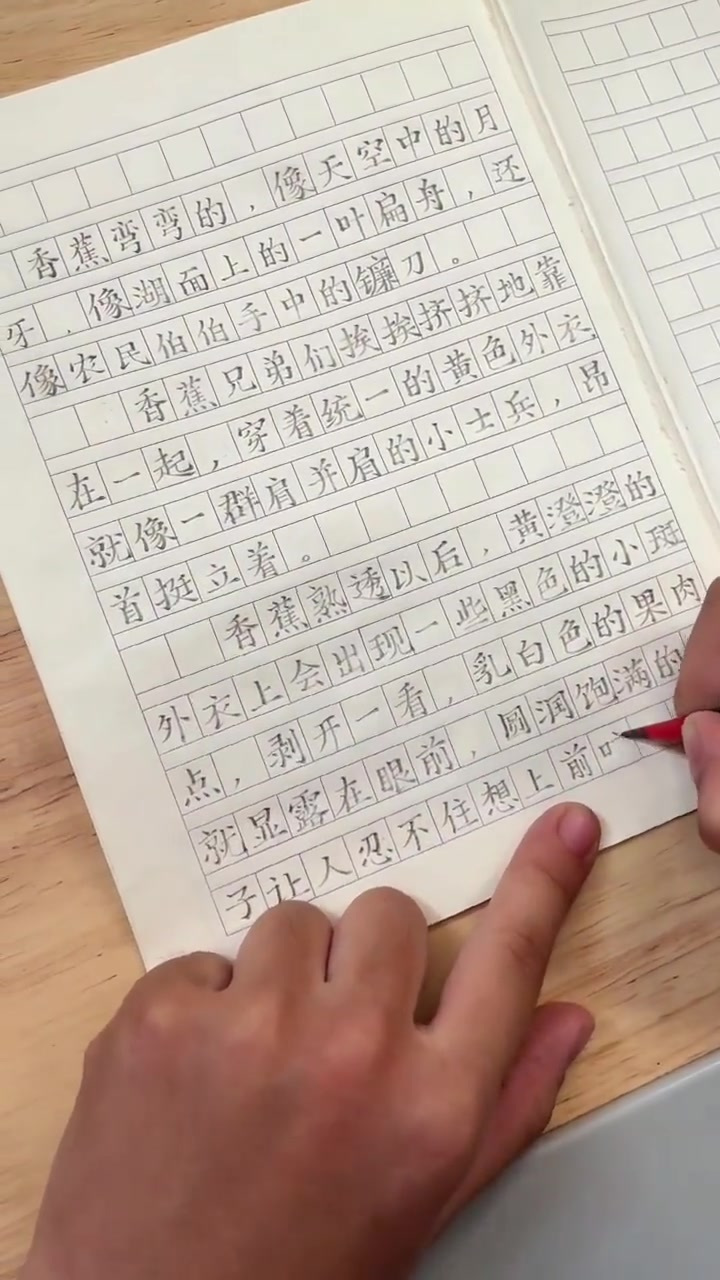 香蕉弯弯的，像天空中的月
牙，像湖面上的一叶扁舟，还
像农民伯伯手中的镰刀。
香蕉兄弟们挨挨挤挤地靠
在一起，穿着统一的黄色外衣，
就像一群肩并肩的小士兵，昂
首挺立着。
香蕉熟透以后，黄澄澄的
外衣上会出现一些黑色的小斑
点，剥开一看，乳白色的果肉
就显露在眼前，圆润饱满的
子让人忍不住想上前